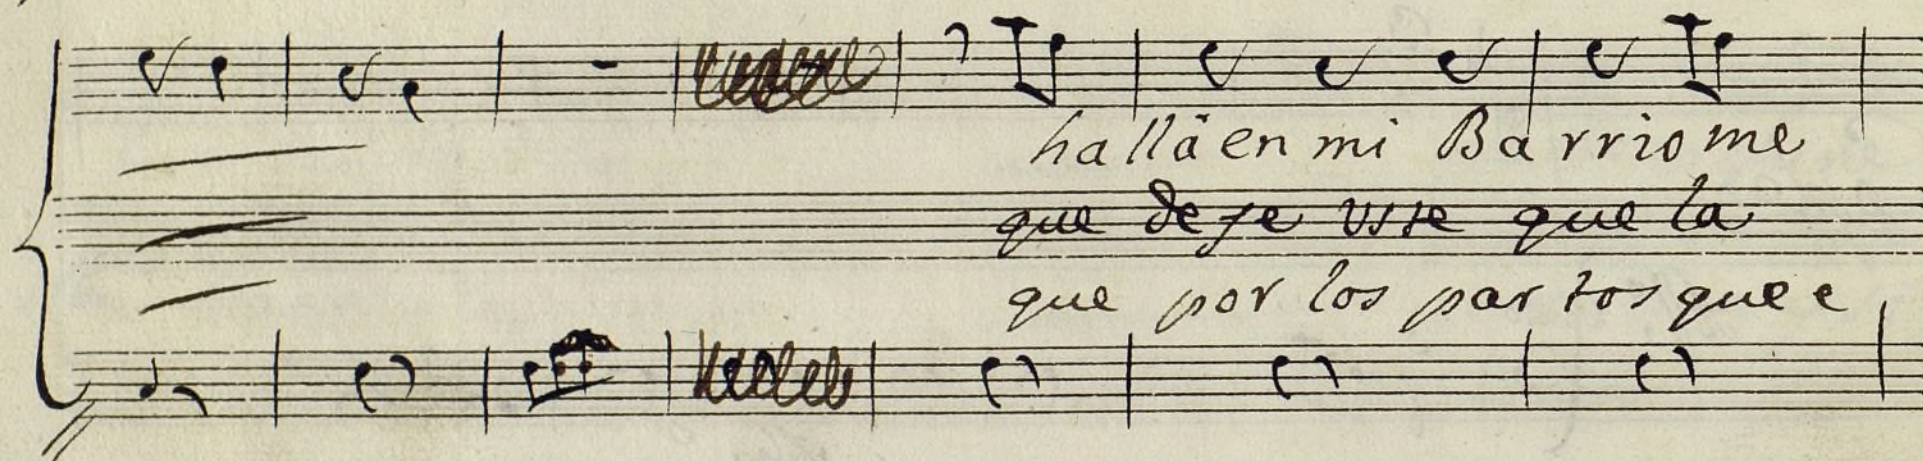 hallä en mi Barrio me
que de se uste que la
que por los partos que e